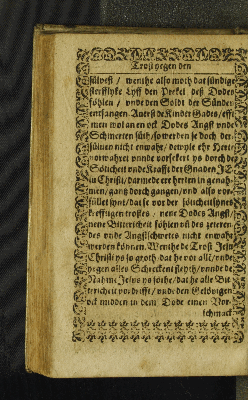 Trost gegen den
sülvest / wenthe also moth dat sündige
sterfflyke Lyff den Perkel deß Dodes
föhlen / vnde den Soldt der Sünden
entfangen. Auerst de Kinder Gades / eff
men wol an en des Dodes Angst vnde
Schmerten süth / so werden se doch der
sülven nicht enwahr / dewyle ehr Herte
vorwahret vnnde vorsekert ys dorch de
Söticheit vnde Krafft der Gnaden
in Christi / darmede ere Herten in
men / gantz dorch gegaen / vnd also vor
füllet synt / dat se vor der söticheit synes
krefftigen trostes / nene Dodes Angst /
nene Bittericheit föhlen
des vnde Angstschwetes nicht enwahr
werden können. Wenthe de Trost Jesu
Christi ys so groth / dat he vor alle / vnde
yegen alles Schrecken / vnnde de
Nahme Jesus ys söthe / dat he alle Bit
tericheit vordrifft / vnde den Gelövigen
ock midden in dem Dode einen Vor-
schmack